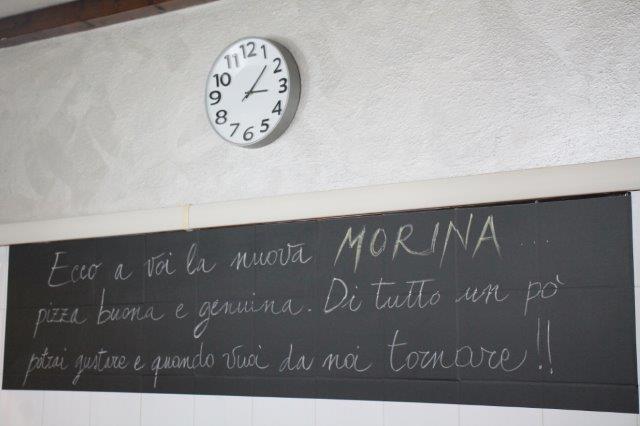 12
1
2
3
4
5
6
7
8
9
10
11
Ecco a voi la nuova MORINA ...
pizza buona e genuina. Di tutto un pò
potrai gustare e quando vuoi da noi tornare!!